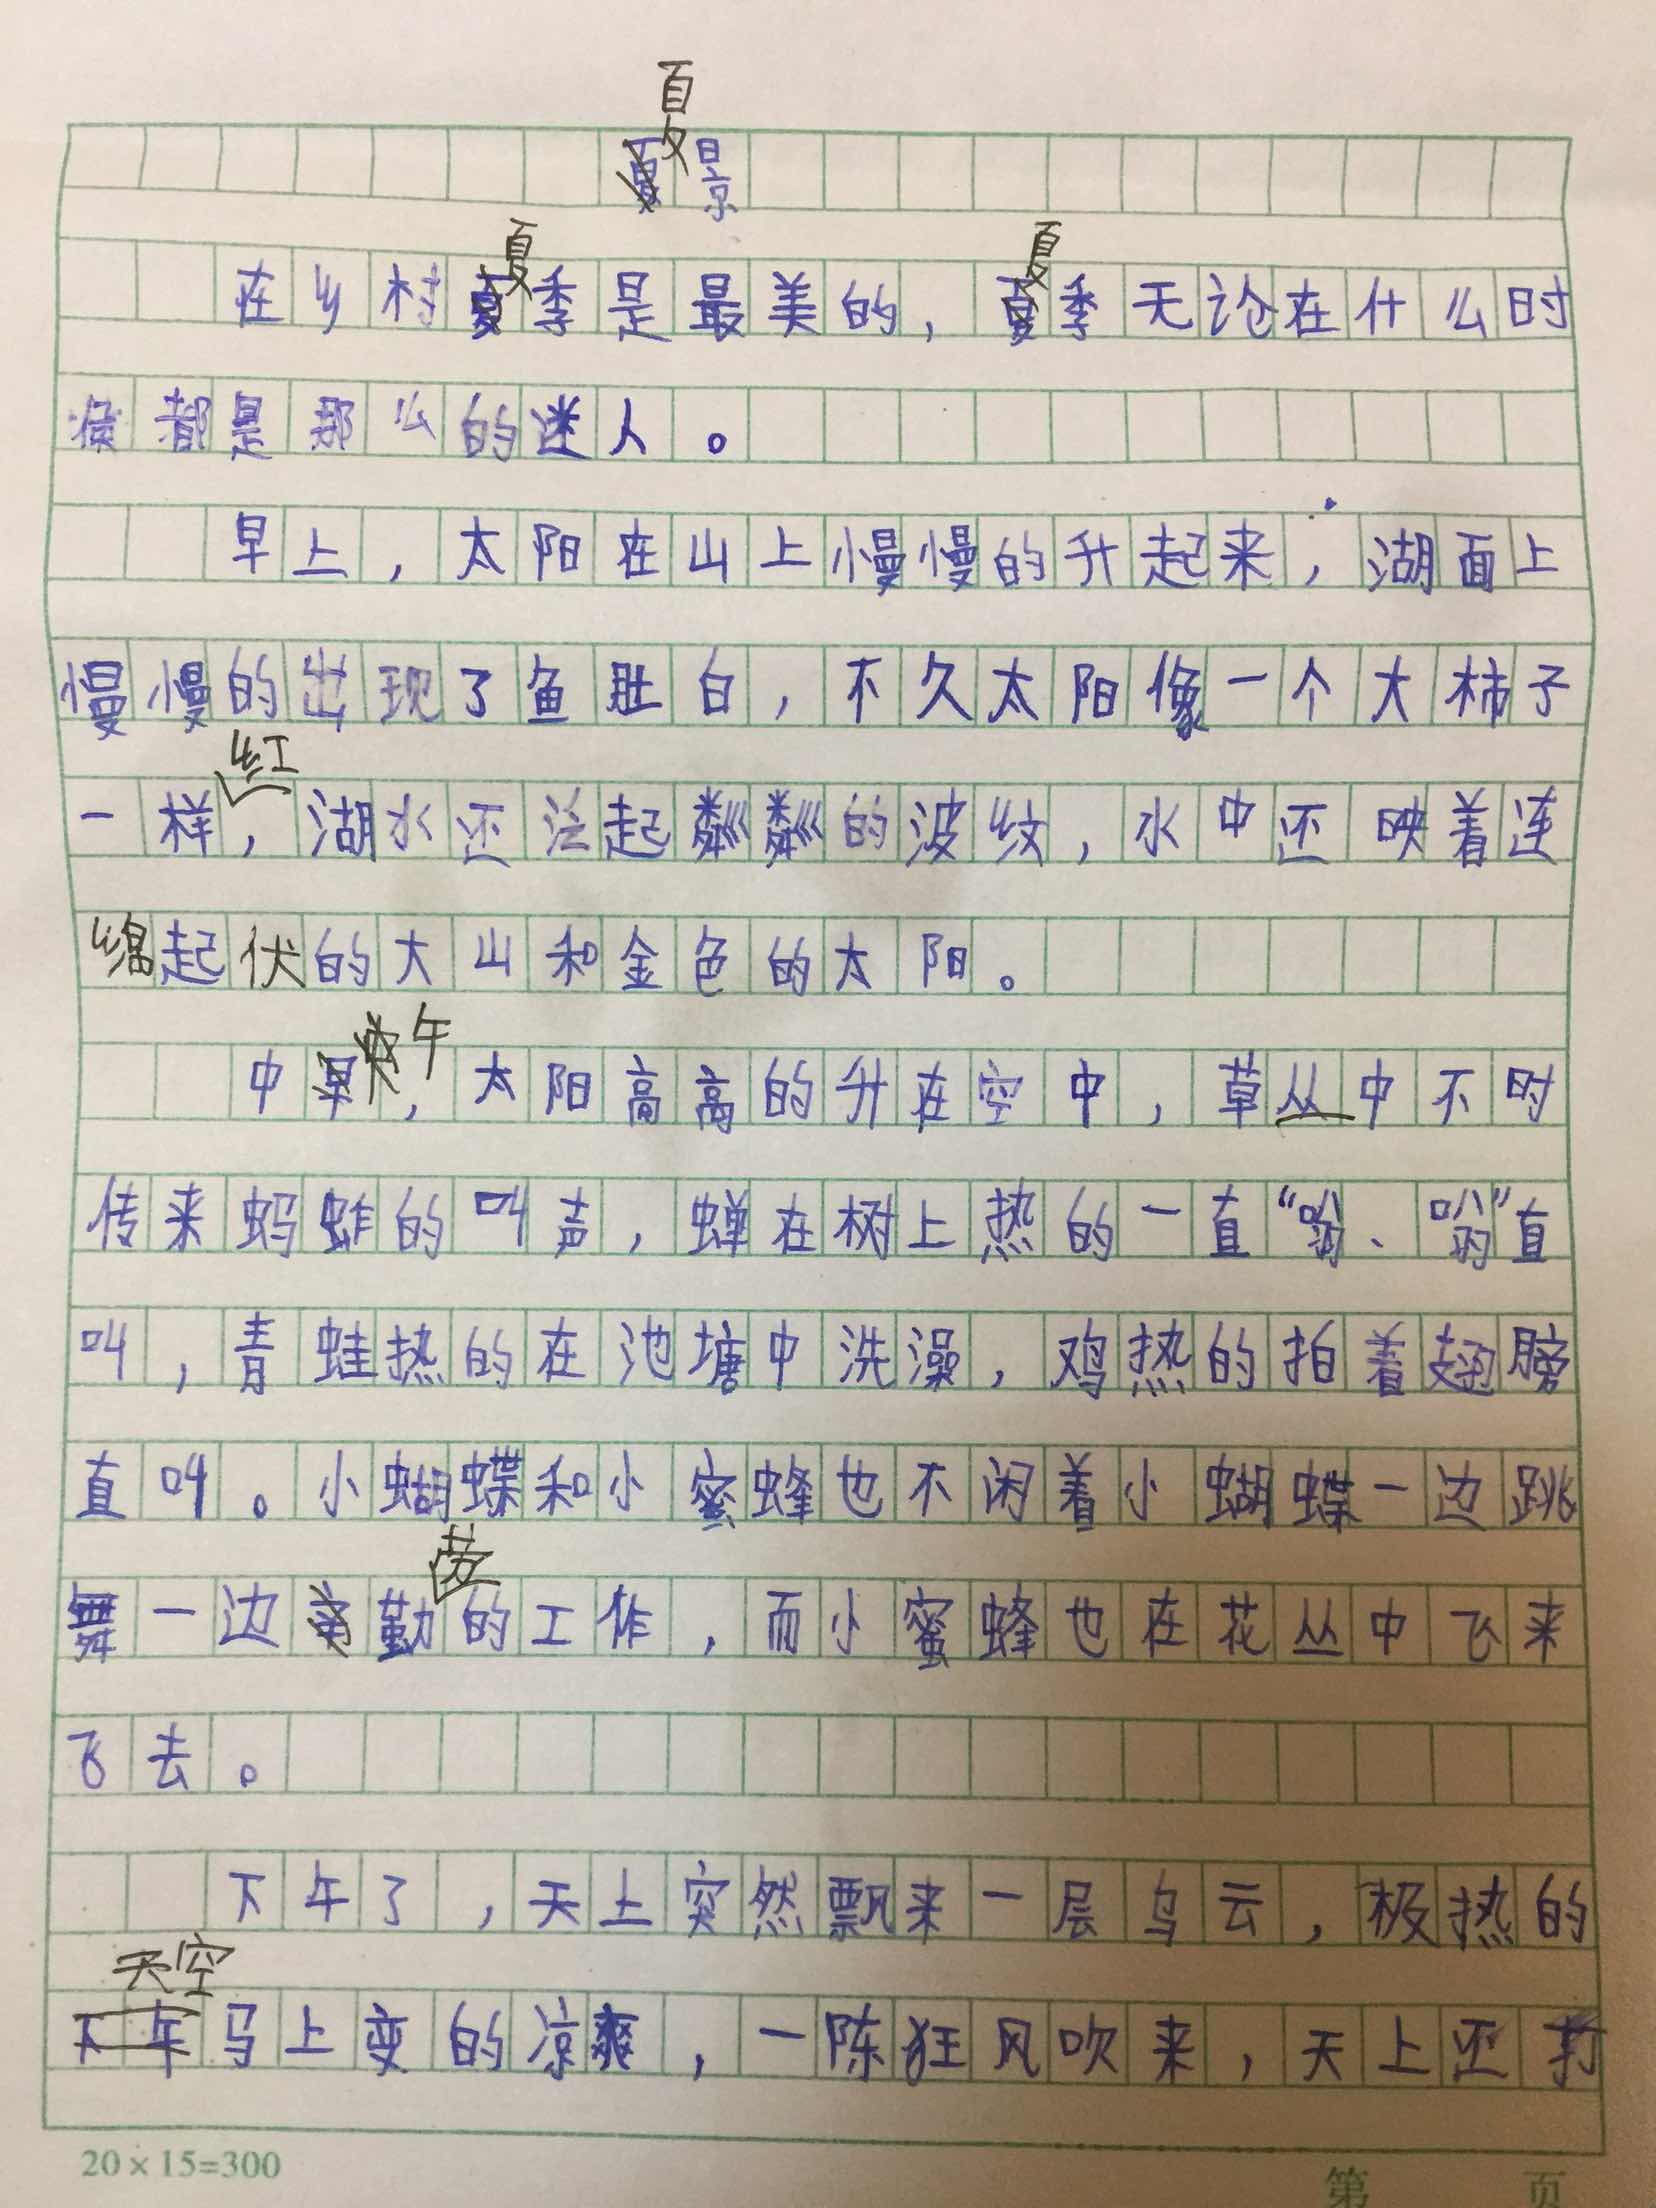 夏景
在乡村夏季是最美的，夏季无论在什么时
候都是那么的迷人。
早上，太阳在山上慢慢的升起来，湖面上
慢慢的出现了鱼肚白，不久太阳像一个大柿子
一样红，湖水还泛起粼粼的波纹，水中还映着连
绵起伏的大山和金色的太阳。
中午，太阳高高的升在空中，草丛中不时
传来蚂蚱的叫声，蝉在树上热的一直“嗡、嗡”直
叫，青蛙热的在池塘中洗澡，鸡热的拍着翅膀
直叫。小蝴蝶和小蜜蜂也不闲着小蝴蝶一边跳
舞一边勤劳的工作，而小蜜蜂也在花丛中飞来
飞去。
下午了，天上突然飘来一层乌云，极热的
天空马上变的凉爽，一陈狂风吹来，天上还打
20×15=300
第 页